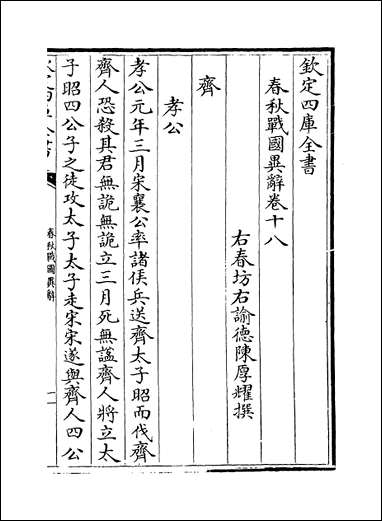 欽定四庫全書
春秋戰國異辭卷十八
右春坊右諭德陳厚耀撰
齊
孝公
孝公元年三月宋襄公率諸侯兵送齊太子昭而伐齊
齊人恐殺其君無詭無詭立三月死無諡齊人將立太
子昭四公子之徒攻太子太子走宋宋遂與齊人四公
春秋戰國異辭
一